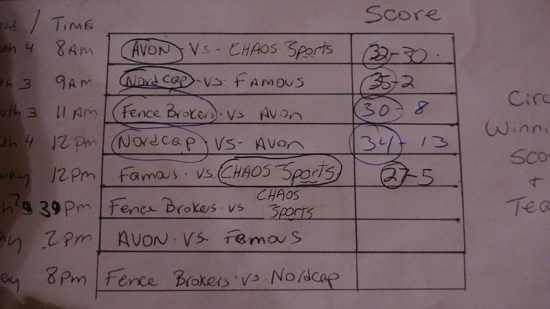 / TIME Score
4 8AM AVON - VS - CHAOS Sports 32-30.
3 9AM Nordcap - VS. FAMOUS 35-2
3 11AM Fence Brokers - VS AVON 30-8
4 12pm Nordcap - VS - AVON 34-13
12pm FAMOUS - VS. CHAOS Sports 27-5
39pm Fence Brokers - VS CHAOS Sports
2pm AVON - VS - FAMOUS
8pm Fence Brokers - VS. Nordcap
Circ
Winni
Scor
+
Tea